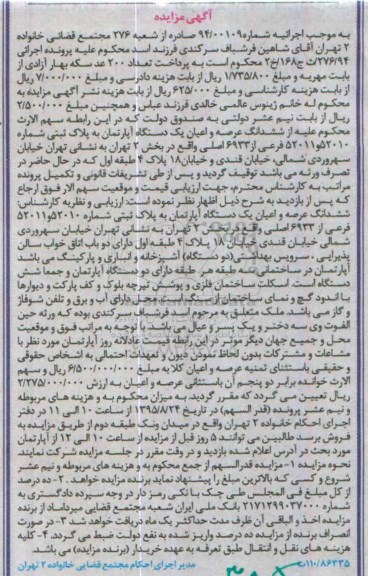 آگهی مزایده
به موجب اجرائیه شماره ۹۴/۰۰۱۰۹ صادره از شعبه ۲۷۶ مجتمع قضائی خانواده
۲ تهران آقای شاهین فرشباف سرکندی فرزند اسد محکوم علیه پرونده اجرائی
۲۷۶/۹۴ت ج/۱۶۸خ۲ محکوم است به پرداخت تعداد ۲۰۰ عدد سکه بهار آزادی از
بابت مهریه و مبلغ ۱/۷۳۵/۸۰۰ ریال از بابت هزینه دادرسی و مبلغ ۷/۰۰۰/۰۰۰ ریال
از بابت هزینه کارشناسی و مبلغ ۶۲۵/۰۰۰ ریال از بابت هزینه نشر آگهی مزایده به
محکوم له خانم ژینوس عالمی خالدی فرزند عباس و همچنین مبلغ ۲/۵۰۰/۰۰۰
ریال از بابت نیم عشر دولتی به صندوق دولت که در این رابطه سهم الارث
محکوم علیه از ششدانگ عرصه و اعیان یک دستگاه آپارتمان به پلاک ثبتی شماره
۵۲۰۱۰و۵۲۰۱۱ فرعی از ۶۹۳۳ اصلی واقع در بخش ۲ تهران به نشانی تهران خیابان
سهروردی شمالی، خیابان قندی و خیابان ۱۸ پلاک ۴ طبقه اول که در حال حاضر در
تصرف ورثه می باشد توقیف گردید و پس از طی تشریفات قانونی و تکمیل پرونده
مراتب به کارشناس محترم، جهت ارزیابی قیمت و موقعیت سهم الار فوق ارجاع
که پس از بازدید به شرح ذیل اظهار نظر نموده است: ارزیابی و نظریه کارشناس:
ششدانگ عرصه و اعیان یک دستگاه آپارتمان به پلاک ثبتی شماره ۵۲۰۱۰و۵۲۰۱۱
فرعی از ۶۹۳۳ اصلی واقع در بخش ۲ تهران به نشانی تهران خیابان سهروردی
شمالی خیابان قندی خیابان ۱۸ پلاک ۴ طبقه اول دارای دو باب اتاق خواب سالن
پذیرایی، سرویس بهداشتی (دو دستگاه) آشپزخانه و انباری و پارکینگ می باشد
آپارتمان در ساختمانی سه طبقه هر طبقه دارای دو دستگاه آپارتمان و جمعا شش
دستگاه است. اسکلت ساختمان فلزی و پوشش تیرچه بلوک و کف پارکت و دیوارها
با اندود گچ و نمای ساختمان از سنگ است. محل دارای آب و برق و تلفن شوفاژ
و گاز می باشد. ملک متعلق به مرحوم اسد فرشباف سرکندی بوده که ورثه حین
الفوت وی سه دختر و یک پسر و عیال می باشد. با توجه به مراتب فوق و موقعیت
محل و جمیع جهان دیگر موثر در این رابطه قیمت عادلانه روز آپارتمان مورد نظر با
مشاعات و مشترکات بدون لحاظ نمودن دیون و تعهدات احتمالی به اشخاص حقوقی
و حقیقی باستثنای ثمنیه عرصه و اعیان کلا به مبلغ ۶/۵۰۰/۰۰۰/۰۰۰ ریال و سهم
الارث خوانده برابر دو پنجم آن باستثنائی عرصه و اعیان به ارزش ۲/۲۷۵/۰۰۰/۰۰۰
ریال تعیین می گردد که مقرر گردید به میزان محکوم به و هزینه های مربوطه
و نیم عشر پرونده (قدر السهم) در تاریخ ۱۳۹۵/۸/۲۴ از ساعت ۱۰ الی ۱۱ در دفتر
اجرای احکام خانواده ۲ تهران واقع در میدان ونک طبقه دوم از طریق مزایده به
فروش برسد طالبین می توانند ۵ روز قبل از مزایده از ساعت ۱۰ الی ۱۲ از آپارتمان
مورد بحث در آدرس اعلام شده بازدید و در وقت مقرر در جلسه مزایده شرکت نمایند.
نحوه مزایده ۱-مزایده قدرالسهم از جمع محکوم به و هزینه های مربوطه و نیم عشر
شروع و کسی که بالاترین مبلغ را پیشنهاد نماید برنده مزایده خواهد. ۲- ده درصد
از کل مبلغ فی المجلس طی چک بانکی رمز دار در وجه سپرده دادگستری به
شماره ۲۱۷۱۲۹۹۰۳۷۰۰۰ بانک ملی ایران شعبه مجتمع قضایی میرداماد از برنده
مزایده اخذ و الباقی آن ظرف مدت حداکثر یک ماه دریافت خواهد شد ۳- در صورت
انصراف برنده از مزایده ده درصد واریز شده به نفع دولت ضبط می گردد ۴- کلیه
هزینه های نقل و انتقال طبق تعرفه به عهده خریدار (برنده مزایده) می باشد.
۱۱۰/۸۶۳۳۵ت مدیر اجرای احکام مجتمع قضایی خانواده ۲ تهران